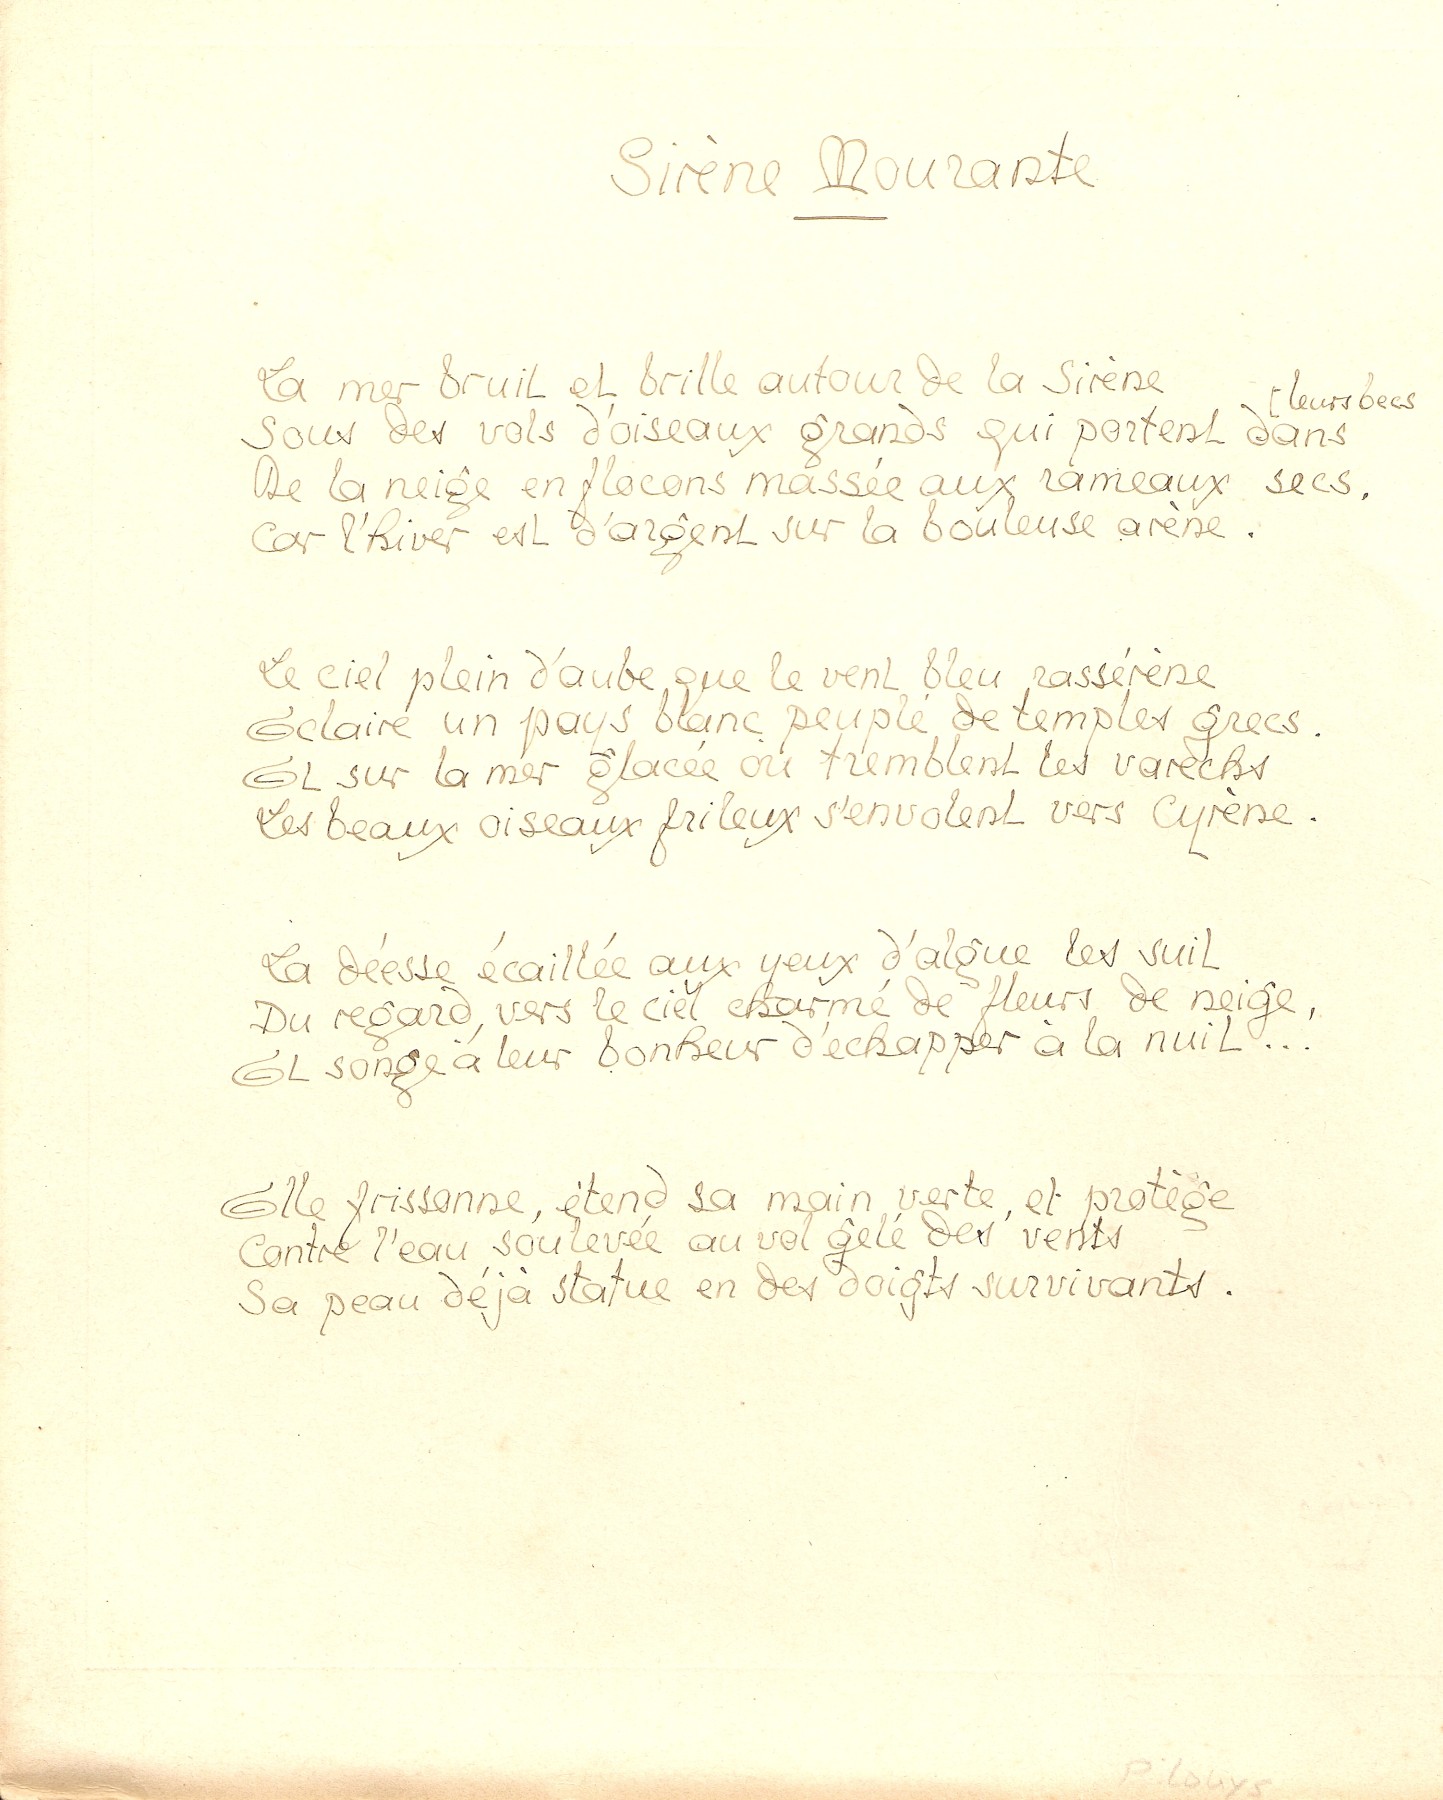 Sirène Mourante
La mer bruit et brille autour de la Sirène
Sous des vols d'oiseaux grands qui portent dans [leurs becs
De la neige en flocons massée aux rameaux secs,
Car l'hiver est d'argent sur la bouleuse arène.
Le ciel plein d'aube que le vent bleu rassérène
Eclaire un pays blanc peuplé de temples grecs.
Et sur la mer glacée où tremblent les varechs
Les beaux oiseaux frileux s'envolent vers Cyrène.
La déesse écaillée aux yeux d'algue les suit
Du regard, vers le ciel charmé de fleurs de neige,
Et songe à leur bonheur d'échapper à la nuit...
Elle frissonne, étend sa main verte, et protège
Contre l'eau soulevée au vol gelé des vents
Sa peau déjà statue en des doigts survivants.
P. Louys